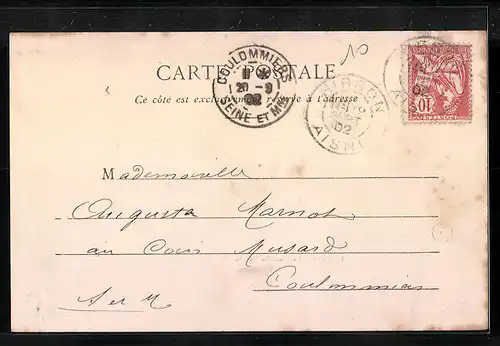 10
CARTE POSTALE
Ce côté est exclusivement réservé à l'adresse
COULOMMIERS
20 - 9
02
SEINE ET MNE
HIRSON
SEPT
02
AISNE
02
AISNE
10
POSTES
Mademoiselle
Augusta Marnot
au Coin Musard
Coulommiers
S et M